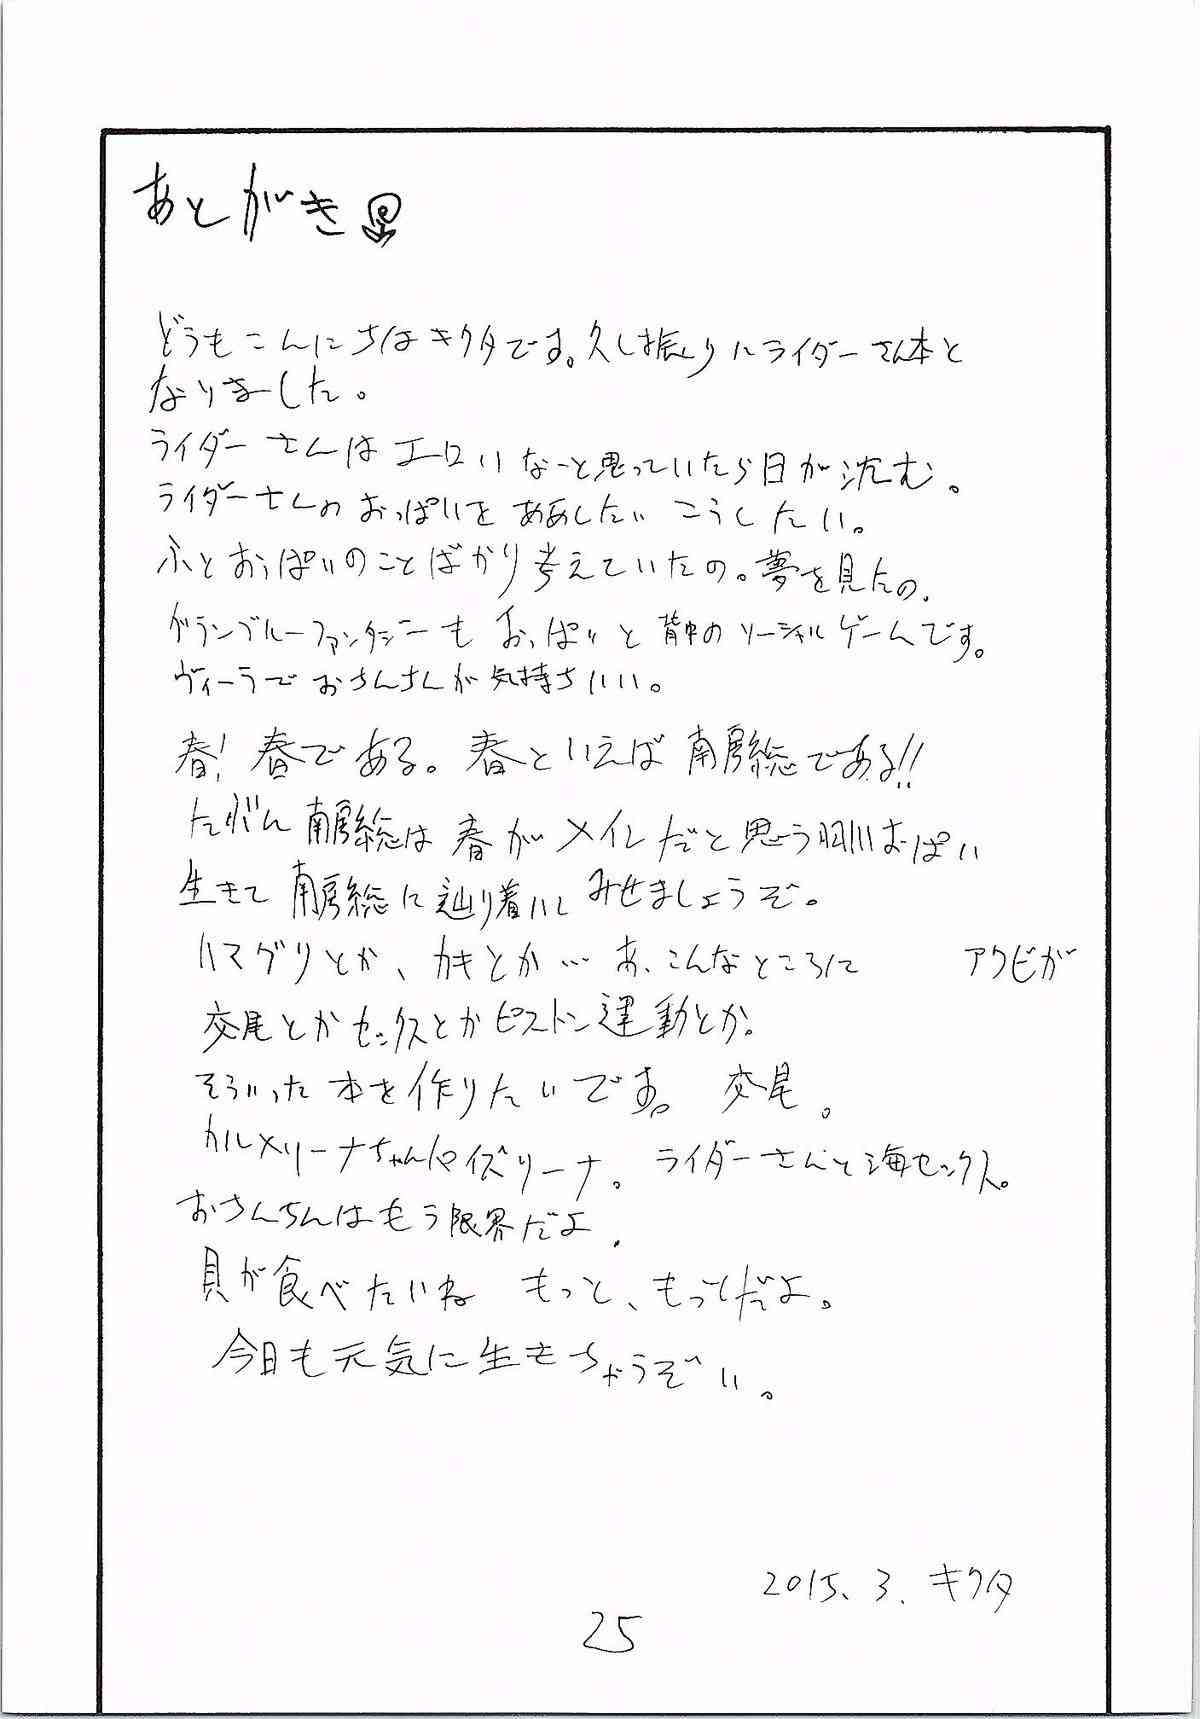 あとがき
どうもこんにちはキクタです。久し振りにライダーさん本と
なりました。
ライダーさんはエロいなーと思っていたら日が沈む。
ライダーさんのおっぱいをああしたいこうしたい。
ふとおっぱいのことばかり考えていたの。夢を見たの.
グランブルーファンタジーもおっぱいと背中のソーシャルゲームです。
ヴィーラでおちんちんが気持ちいい。
春! 春である。春といえば南房総である!!
たぶん南房総は春がメインだと思う おっぱい
生きて南房総に辿り着いてみせましょうぞ。
ハマグリとか、カキとか… あ、こんなところに アワビが
交尾とかセックスとかピストン運動とか。
そういった本を作りたいです。 交尾。
カルメリーナちゃんパイズリーナ。ライダーさんと海セックス。
おちんちんはもう限界だよ.
貝が食べたいね もっと、もっとだよ。
今日も元気に生きちゃうぞい。
2015.3.キクタ
25